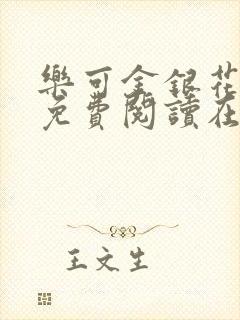 樂可金銀花
免費閱讀在
王文生